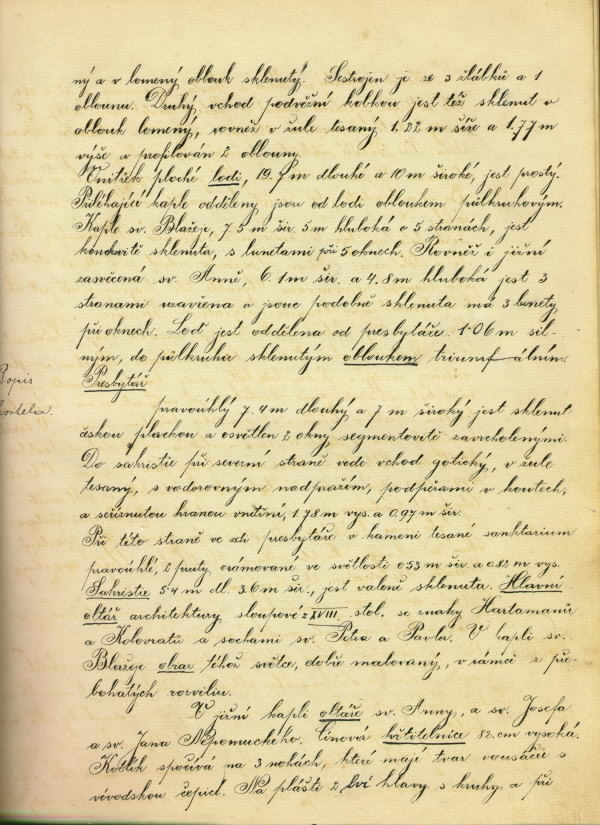 ný a v lomený oblouk sklenutý. Sestrojen je ze 3 žlábků a 1
oblounu. Druhý vchod podvěžní kobkou jest též sklenut v
oblouk lomený, rovněž v žule tesaný 1.22 m šíře a 1.77 m
výše a profilován 2 oblouny.
Vnitřek ploché lodi, 19.7 m dlouhé a 10 m široké, jest prostý.
Přiléhající kaple odděleny jsou od lodi obloukem půlkruhovým.
Kaple sv. Blažeje, 7.5 m šir. 5 m hluboká o 5 stranách, jest
konchovitě sklenuta, s lunetami při 5 oknech. Rovněž i jižní
zasvěcená sv. Anně, 6.1 m šir. a 4.8 m hluboká jest 3
stranami uzavřena a jsouc podobně sklenuta má 3 lunety
při oknech. Loď jest oddělena od presbytáře 1.06 m sil-
ným, do půlkruha sklenutým obloukem triumfálním.
Presbytář
Popis
kostela.
pravoúhlý 7.4 m dlouhý a 7 m široký jest sklenut
českou plackou a osvětlen 2 okny segmentovitě zavrcholenými.
Do sakristie při severní straně vede vchod gotický, v žule
tesaný, s vodorovným nadpražím, podpěrami v koutech,
a seříznutou hranou vnitřní, 1.78 m vys. a 0.97 m šir.
Při této straně ve zdi presbytáře v kameni tesané sanktarium
pravoúhlé, 2 pruty orámované ve světlosti 0.53 m šir. a 0.82 m vys.
Sakristie 5.4 m dl. 3.6 m šir., jest valeně sklenuta. Hlavní
oltář architektury sloupové z XVIII. stol. se znaky Hartmanů
a Kolovratů a sochami sv. Petra a Pavla. V kapli sv.
Blažeje obraz téhož světce, dobře malovaný, v rámci z pře-
bohatých rozvilin.
V jižní kapli oltáře sv. Anny, a sv. Josefa
a sv. Jana Nepomuckého. Cínová křtitelnice 82 cm vysoká.
Kotlík spočívá na 3 nohách, které mají tvar vousáče s
vévodskou čepicí. Na plášti 2 lví hlavy s kruhy a při